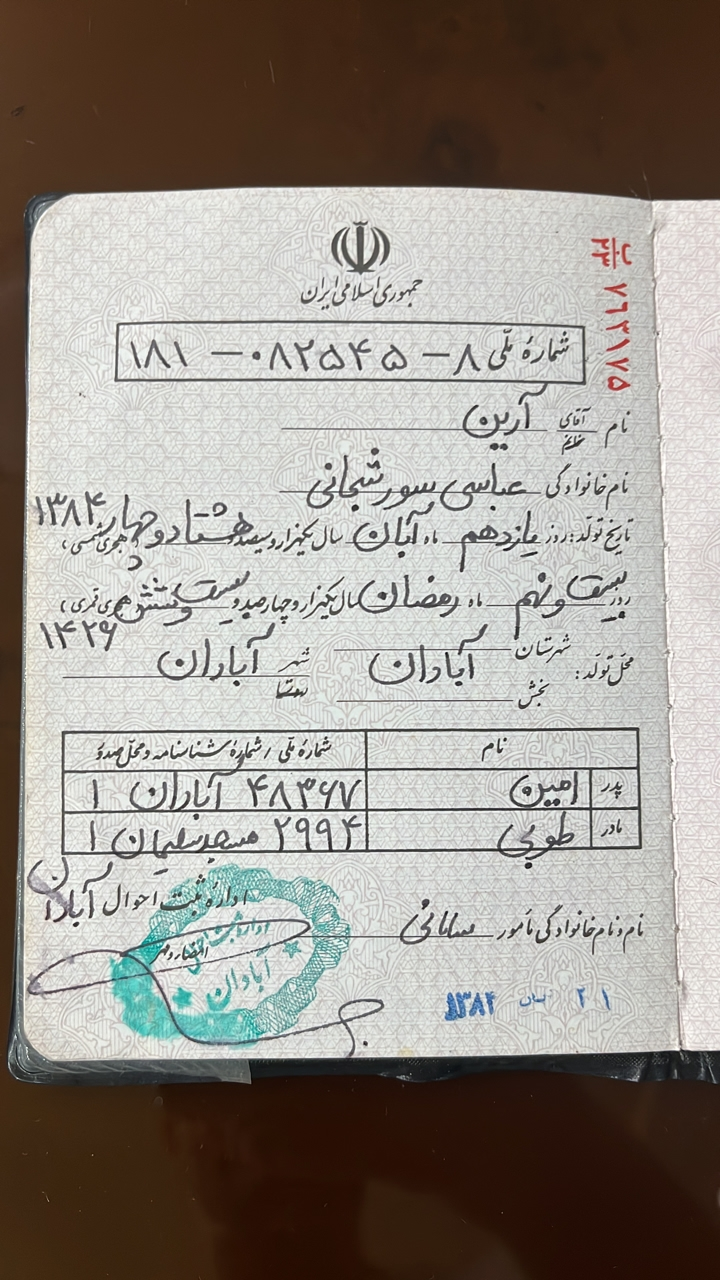 جمهوری اسلامی ایران
ب
۲۳ ۷۶۳۱۷۵
شمارهٔ ملّی ۸ – ۰۸۲۵۴۵ – ۱۸۱
نام آقای خانم آرین
نام خانوادگی عباسی سورشجانی
تاریخ تولّد: روز یازدهم ماه آبان سال یکهزار و سیصد و هشتاد و چهار (هجری شمسی)
۱۳۸۴
روز بیست و نهم ماه رمضان سال یکهزار و چهارصد و بیست و شش (هجری قمری)
۱۴۲۶
محلّ تولّد: شهرستان آبادان شهر آبادان
بخش
نام شمارهٔ ملّی / شمارهٔ شناسنامه و محلّ صدور
پدر امین ۴۸۳۶۷ آبادان ۱
مادر طوبی ۲۹۹۴ مسجدسلیمان ۱
ادارهٔ ثبت احوال آبادان
نام و نام خانوادگی مأمور
امضاء و مهر
آبادان
۲۱